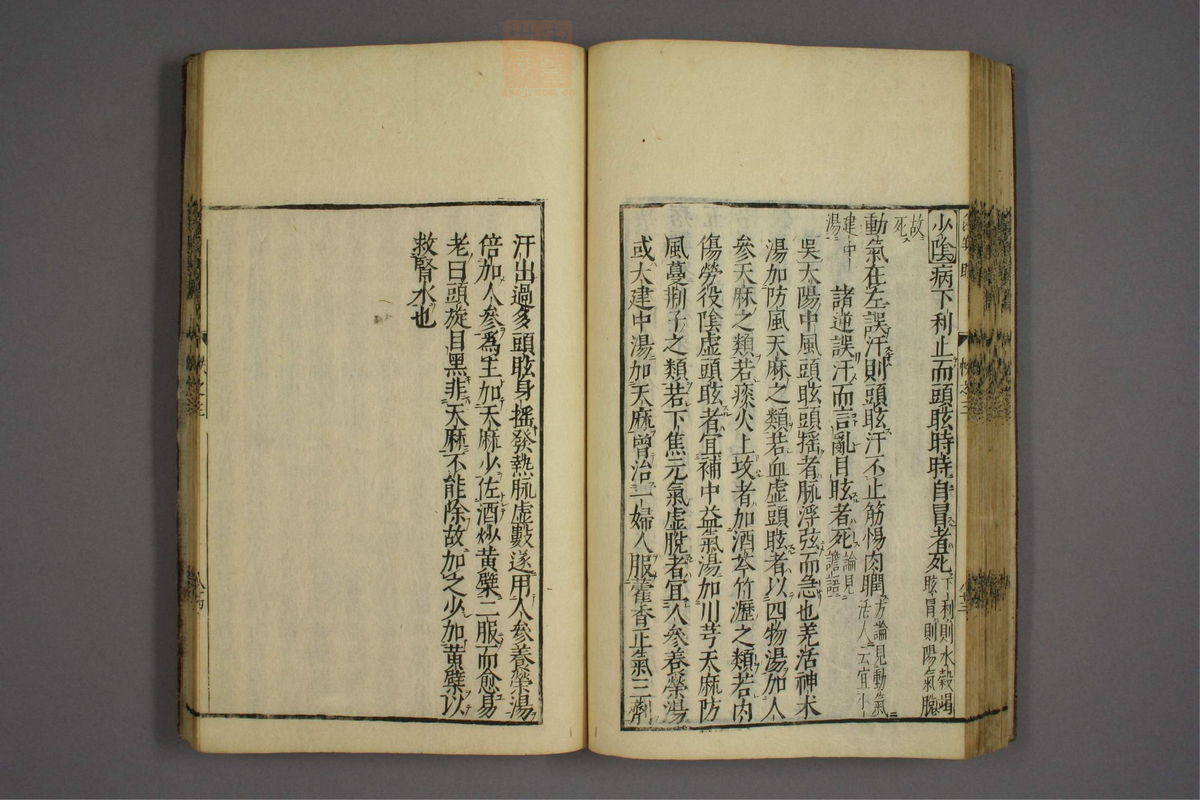 少陰病下利止而頭眩時時自冒者死下利則水穀竭眩冒則陽氣脫
故死
動氣在左誤汗則頭眩汗不止筋惕肉瞤方論見動氣活人云宜小
建中湯
諸逆誤汗而言亂目眩者死論見譫語
吳太陽中風頭眩頭搖者脈浮弦而急也羌活神朮
湯加防風天麻之類若血虛頭眩者以四物湯加人
參天麻之類若痰火上攻者加酒芩竹瀝之類若內
傷勞役陰虛頭眩者宜補中益氣湯加川芎天麻防
風蔓荊子之類若下焦元氣虛脫者宜人參養榮湯
或大建中湯加天麻曾治一婦人服藿香正氣三劑
汗出過多頭眩身搖發熱脈虛數遂用人參養榮湯
倍加人參為主加天麻少佐酒炒黃檗二服而愈易
老曰頭旋目黑非天麻不能除故加之少加黃檗以
救腎水也
八十四